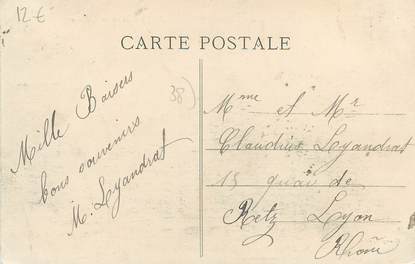 12€
CARTE POSTALE
38)
Mille Baisers
bons souvenirs
M. Lyandrat
Mme et Mr
Claudius Lyandrat
15 quai de
Retz Lyon
Rhône